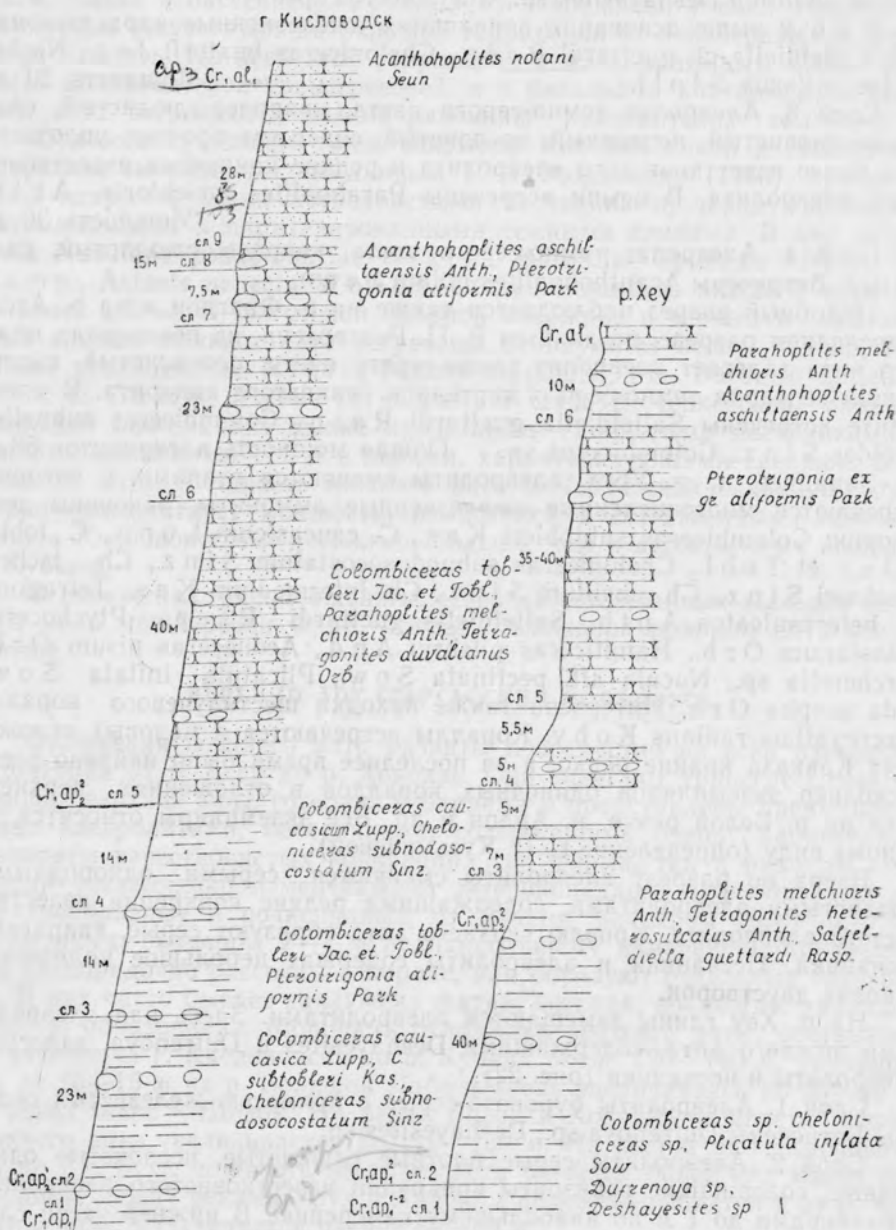 г Кисловодск
ap3 Cr₁al.
Acanthohoplites nolani
Seun
28м
85
сл 9
15м сл 8
7,5м
сл 7
Acanthohoplites aschil-
taensis Anth., Pterotri-
gonia aliformis Park
23м
сл 6
40м
Colombiceras tob-
leri Jac. et. Tobl.,
Parahoplites mel-
chioris Anth. Tetra-
gonites duvalianus
Orb
Cr₁ap₂² сл 5
Colombiceras cau-
casicum Lupp., Chelo-
niceras subnodoso-
costatum Sinz
14м
сл 4
Colombiceras tob-
leri Jac. et. Tobl.,
Pterotrigonia ali-
formis Park
14м
сл 3
Colombiceras cau-
casica Lupp., C.
subtobleri Kas.,
Cheloniceras subno-
dosocostatum Sinz
23м
Cr₁ap₂¹ сл2
сл1
Cr₁ap₁
р. Хеу
Cr₁al.
Parahoplites mel-
chioris Anth
Acanthohoplites
aschiltaensis Anth
10м
сл 6
Pterotrigonia ex
gr aliformis Park
35-40м
сл 5
5,5м
5м
сл. 4
5м
7м
сл 3
Cr₁ap₂²
Parahoplites melchioris
Anth. Tetragonites hete-
rosulcatus Anth., Salfel-
diella guettardi Rasp.
40м
Colombiceras sp. Cheloni-
ceras sp., Plicatula inflata
Sow
Cr₁ap₁² сл. 2
Dufrenoya sp.
Cr₁ap₁¹⁻² сл 1
Deshayesites sp